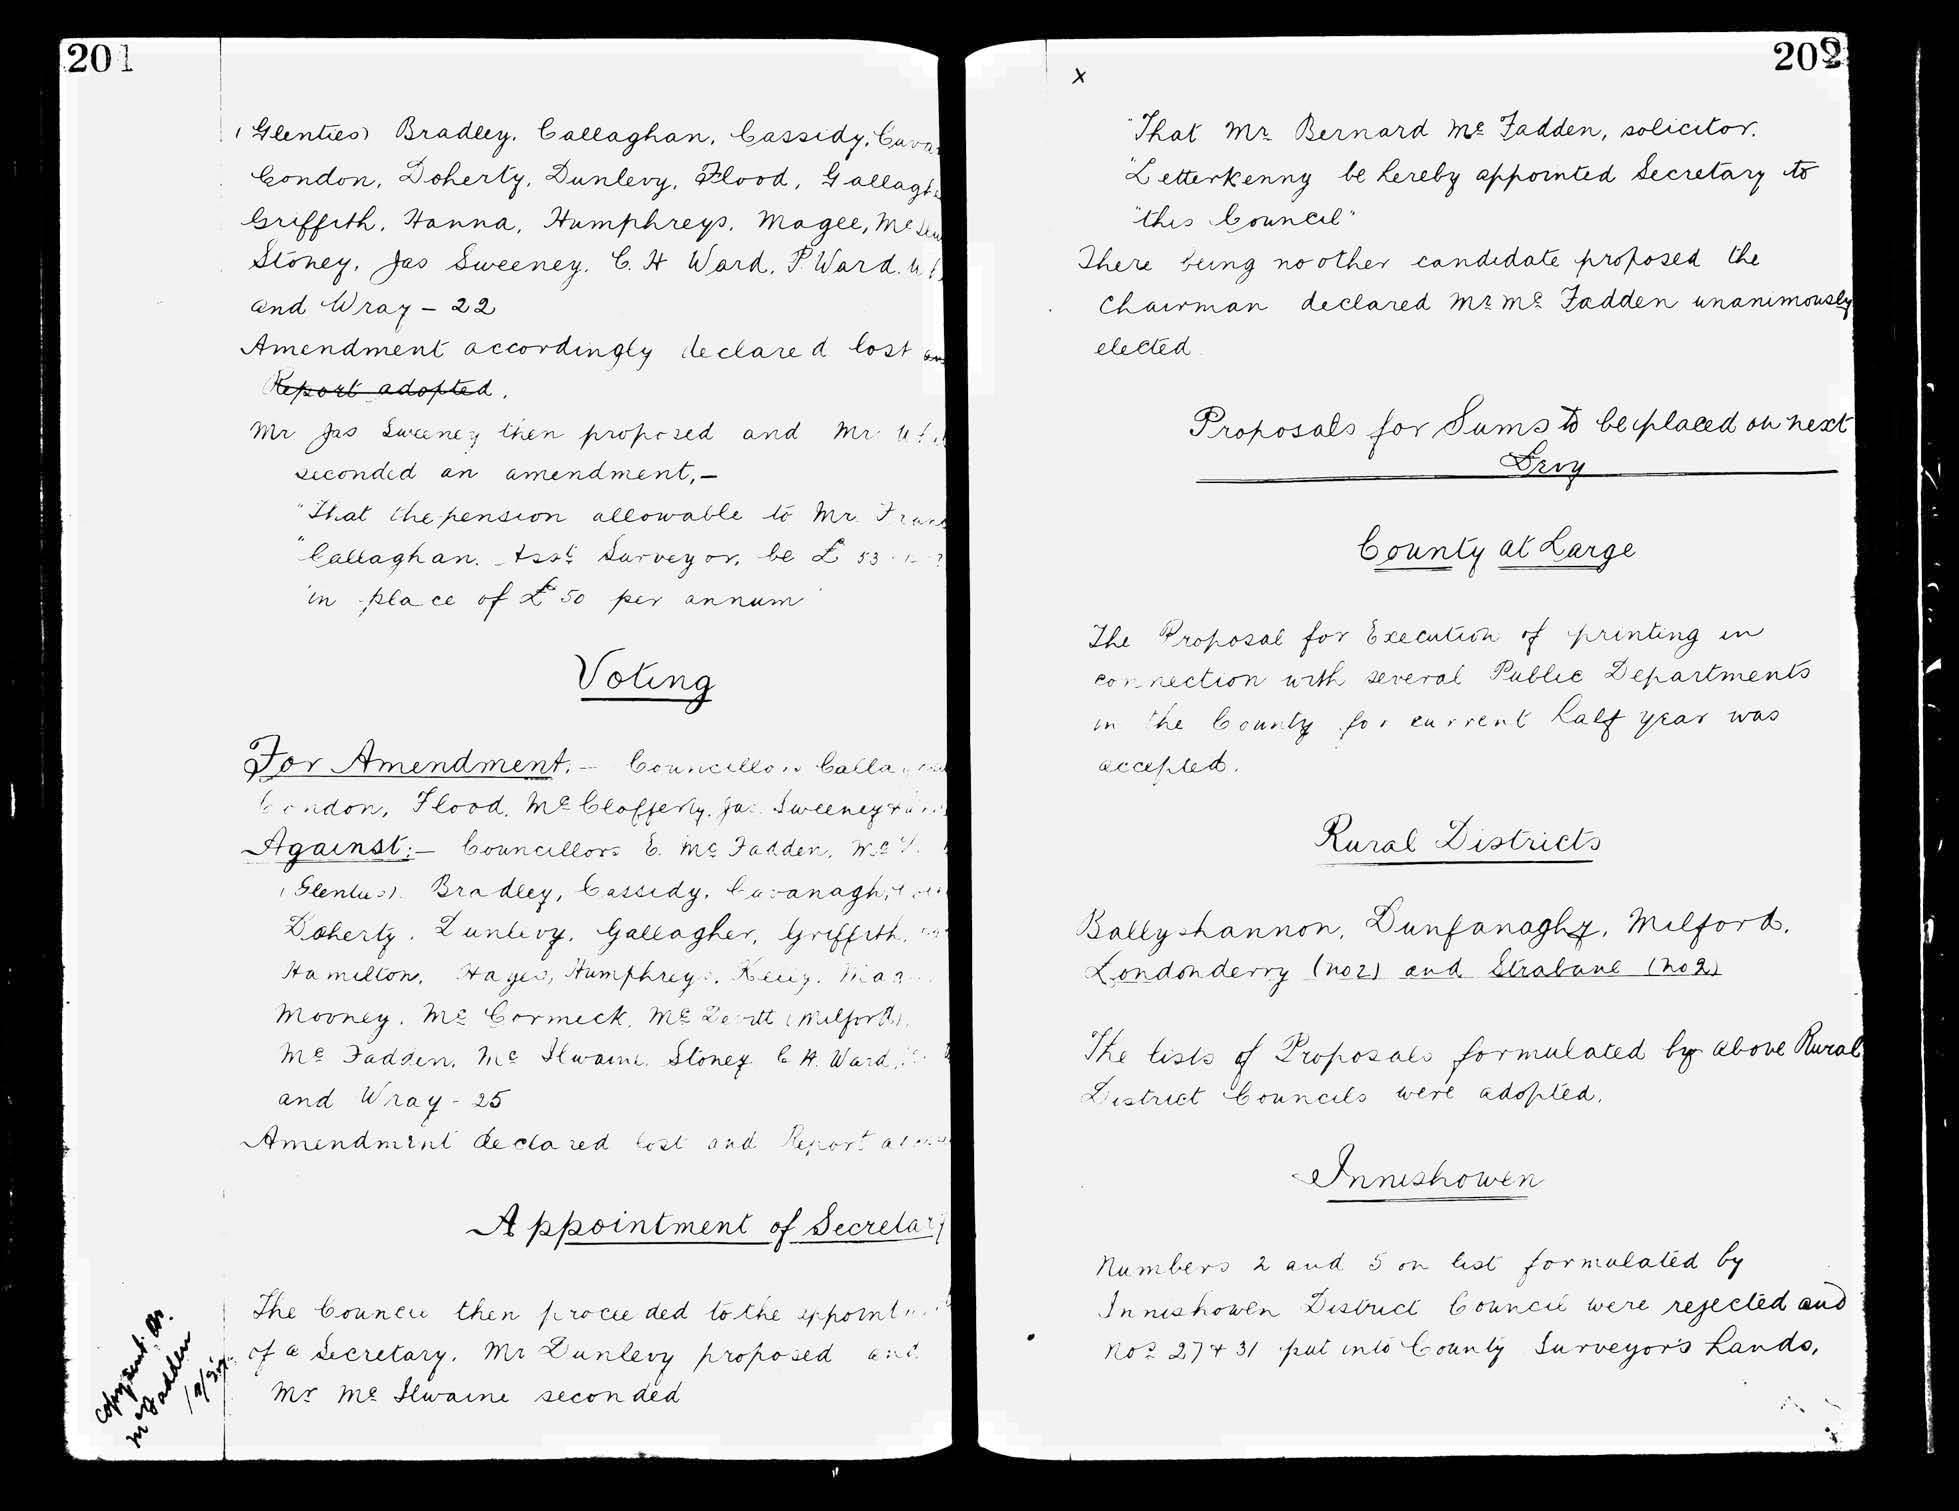 201
(Glenties) Bradley. Callaghan, Cassidy,
Condon, Doherty, Dunlevy, Flood,
Griffith, Hanna, Humphreys, Magee,
Stoney, Jas Sweeney. C. H Ward, P Ward.
and Wray - 22
Amendment accordingly declared lost
Report adopted.
Mr Jas Sweeney then proposed and Mr
seconded an amendment,-
"That the pension allowable to Mr.
"Callaghan. Asst Surveyor, be £ 53
"in place of £50 per annum"
Voting
For Amendment. - Councillors
Condon, Flood, Mc Clafferty, Jas. Sweeney &
Against:- Councillors E. Mc Fadden,
(Glenties). Bradley, Cassidy, Cavanagh,
Doherty, Dunlevy, Gallagher, Griffith,
Hamilton, Hayes, Humphreys, Kelly,
Mooney, Mc Cormick, Mc Devitt (Milford),
Mc Fadden, Mc Ilwaine, Stoney C. H. Ward,
and Wray - 25
Amendment declared lost and Report
Appointment of Secretary
The Council then proceeded to the
of a Secretary. Mr Dunlevy proposed and
Mr Mc Ilwaine seconded
copy sent
McFadden
202
x
"That Mr Bernard Mc Fadden, solicitor.
"Letterkenny be hereby appointed Secretary to
"this Council"
There being no other candidate proposed the
Chairman declared Mr Mc Fadden unanimously
elected
Proposals for Sums to be placed on next
Levy
County at Large
The Proposal for Execution of printing in
connection with several Public Departments
in the County for current half year was
accepted.
Rural Districts
Ballyshannon, Dunfanaghy, Milford,
Londonderry (No 2) and Strabane (No 2)
The lists of Proposals formulated by above Rural
District Councils were adopted.
Innishowen
Numbers 2 and 5 on list formulated by
Innishowen District Council were rejected and
Nos 27 & 31 put into County Surveyor's hands.